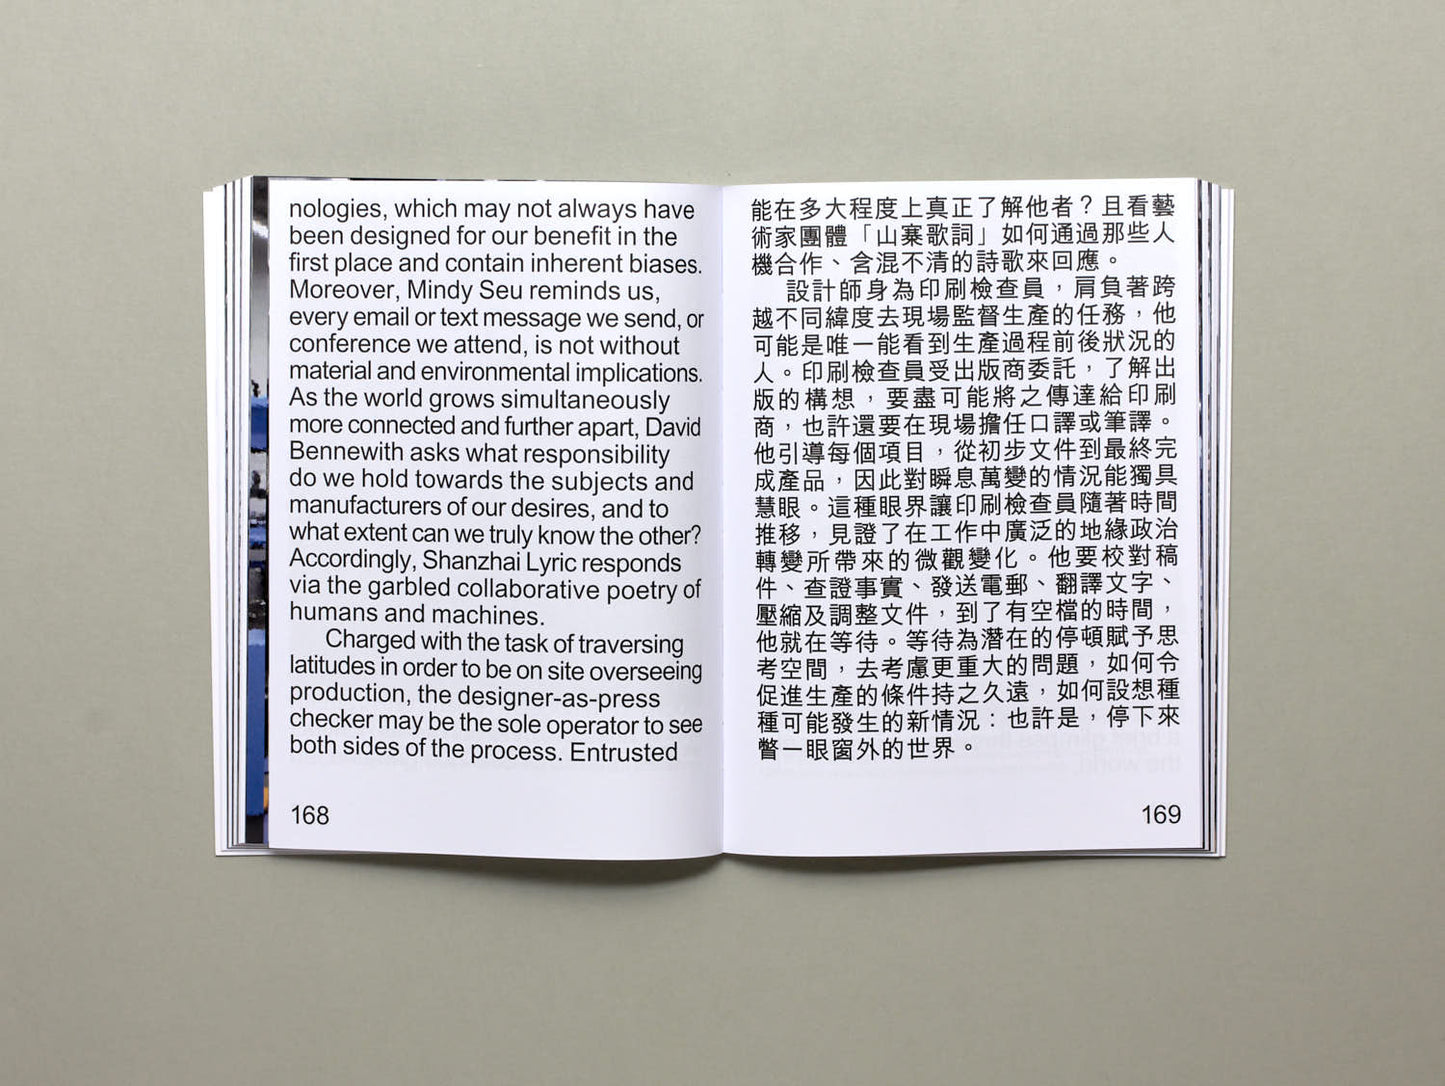 nologies, which may not always have
been designed for our benefit in the
first place and contain inherent biases.
Moreover, Mindy Seu reminds us,
every email or text message we send, or
conference we attend, is not without
material and environmental implications.
As the world grows simultaneously
more connected and further apart, David
Bennewith asks what responsibility
do we hold towards the subjects and
manufacturers of our desires, and to
what extent can we truly know the other?
Accordingly, Shanzhai Lyric responds
via the garbled collaborative poetry of
humans and machines.
Charged with the task of traversing
latitudes in order to be on site overseeing
production, the designer-as-press
checker may be the sole operator to see
both sides of the process. Entrusted
168
能在多大程度上真正了解他者？且看藝
術家團體「山寨歌詞」如何通過那些人
機合作、含混不清的詩歌來回應。
設計師身為印刷檢查員，肩負著跨
越不同緯度去現場監督生產的任務，他
可能是唯一能看到生產過程前後狀況的
人。印刷檢查員受出版商委託，了解出
版的構想，要盡可能將之傳達給印刷
商，也許還要在現場擔任口譯或筆譯。
他引導每個項目，從初步文件到最終完
成產品，因此對瞬息萬變的情況能獨具
慧眼。這種眼界讓印刷檢查員隨著時間
推移，見證了在工作中廣泛的地緣政治
轉變所帶來的微觀變化。他要校對稿
件、查證事實、發送電郵、翻譯文字、
壓縮及調整文件，到了有空檔的時間，
他就在等待。等待為潛在的停頓賦予思
考空間，去考慮更重大的問題，如何令
促進生產的條件持之久遠，如何設想種
種可能發生的新情況：也許是，停下來
瞥一眼窗外的世界。
169